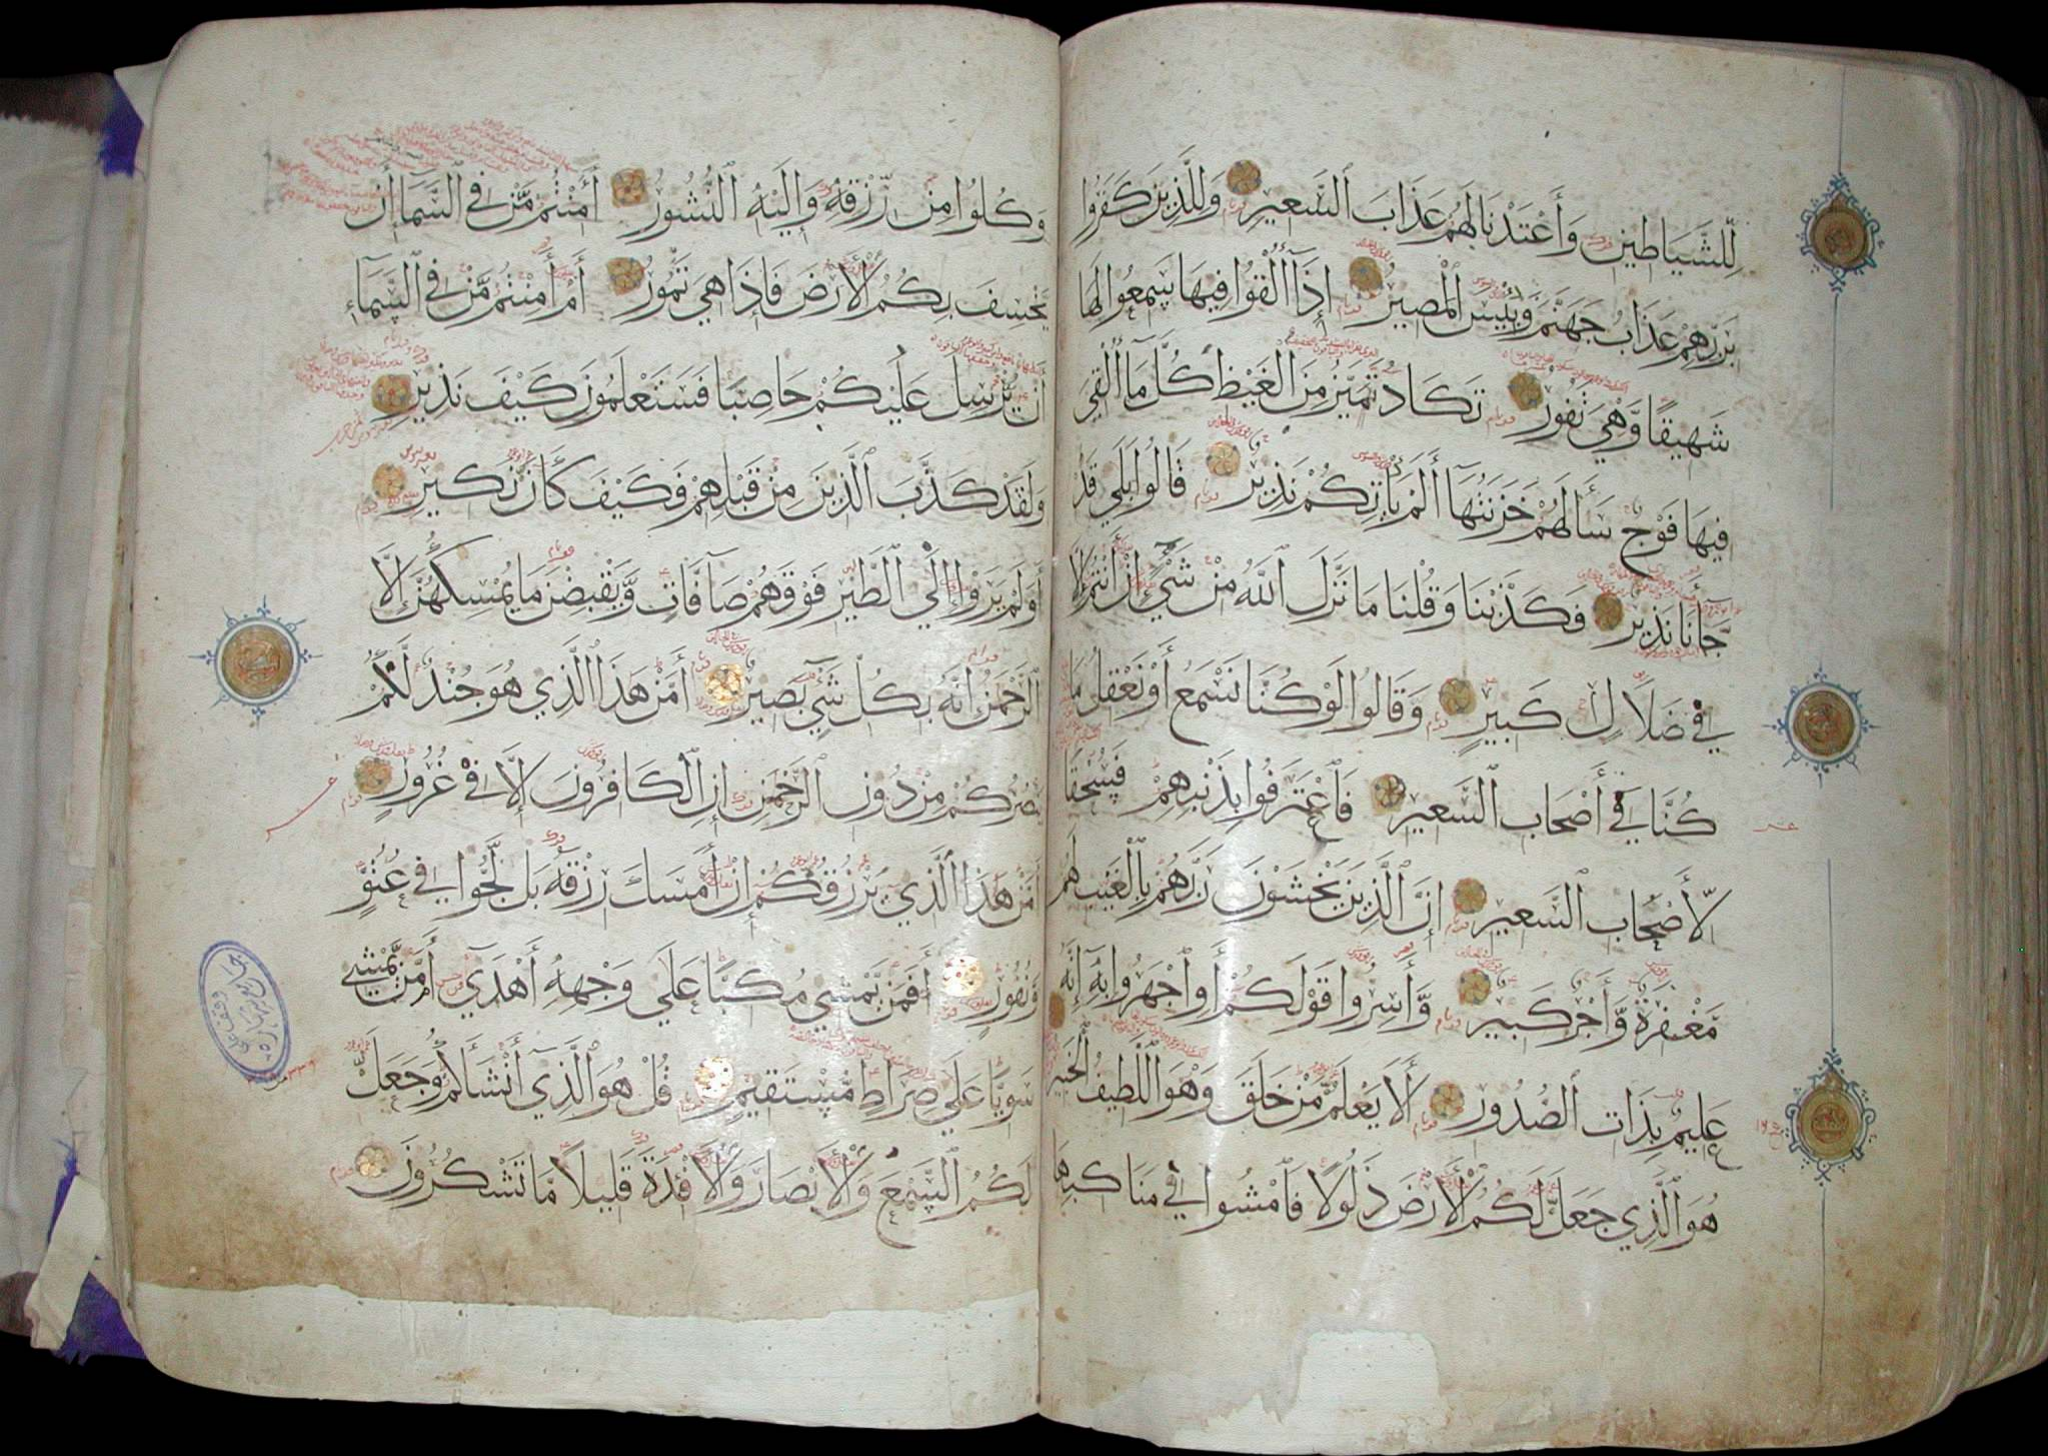 لِّلشَّيَاطِينِ وَأَعْتَدْنَا لَهُمْ عَذَابَ ٱلسَّعِيرِ وَلِلَّذِينَ كَفَرُوا
بِرَبِّهِمْ عَذَابُ جَهَنَّمَ وَبِئْسَ ٱلْمَصِيرُ إِذَآ أُلْقُوا فِيهَا سَمِعُوا لَهَا
شَهِيقًا وَّهْيَ تَفُورُ تَكَادُ تَمَيَّزُ مِنَ ٱلْغَيْظِ كُلَّمَآ أُلْقِيَ
فِيهَا فَوْجٌ سَأَلَهُمْ خَزَنَتُهَآ أَلَمْ يَأْتِكُمْ نَذِيرٌ قَالُوا بَلَى قَدْ
جَآءَنَا نَذِيرٌ فَكَذَّبْنَا وَقُلْنَا مَا نَزَّلَ ٱللَّهُ مِنْ شَيْءٍ إِنْ أَنْتُمْ إِلَّا
فِي ضَلَالٍ كَبِيرٍ وَقَالُوا لَوْ كُنَّا نَسْمَعُ أَوْ نَعْقِلُ مَا
كُنَّا فِيٓ أَصْحَابِ ٱلسَّعِيرِ فَٱعْتَرَفُوا بِذَنْبِهِمْ فَسُحْقًا
لِّأَصْحَابِ ٱلسَّعِيرِ إِنَّ ٱلَّذِينَ يَخْشَوْنَ رَبَّهُمْ بِٱلْغَيْبِ لَهُمْ
مَّغْفِرَةٌ وَّأَجْرٌ كَبِيرٌ وَّأَسِرُّوا قَوْلَكُمْ أَوِ ٱجْهَرُوا بِهِٓ إِنَّهُ
عَلِيمٌ بِذَاتِ ٱلصُّدُورِ أَلَا يَعْلَمُ مَنْ خَلَقَ وَهْوَ ٱللَّطِيفُ ٱلْخَبِيرُ
هُوَ ٱلَّذِي جَعَلَ لَكُمُ ٱلْأَرْضَ ذَلُولًا فَٱمْشُوا فِي مَنَاكِبِهَا
وَكُلُوا مِنْ رِّزْقِهِ وَإِلَيْهِ ٱلنُّشُورُ أَأَمِنْتُمْ مَّنْ فِي ٱلسَّمَآءِ أَنْ
يَّخْسِفَ بِكُمُ ٱلْأَرْضَ فَإِذَا هِيَ تَمُورُ أَمْ أَمِنْتُمْ مَّنْ فِي ٱلسَّمَآءِ
أَنْ يُّرْسِلَ عَلَيْكُمْ حَاصِبًا فَسَتَعْلَمُونَ كَيْفَ نَذِيرِ
وَلَقَدْ كَذَّبَ ٱلَّذِينَ مِنْ قَبْلِهِمْ فَكَيْفَ كَانَ نَكِيرِ
أَوَلَمْ يَرَوْا إِلَى ٱلطَّيْرِ فَوْقَهُمْ صَآفَّاتٍ وَّيَقْبِضْنَ مَا يُمْسِكُهُنَّ إِلَّا
ٱلرَّحْمَنُ إِنَّهُ بِكُلِّ شَيْءٍ بَصِيرٌ أَمَّنْ هَذَا ٱلَّذِي هُوَ جُنْدٌ لَّكُمْ
يَنْصُرُكُمْ مِنْ دُونِ ٱلرَّحْمَنِ إِنِ ٱلْكَافِرُونَ إِلَّا فِي غُرُورٍ
أَمَّنْ هَذَا ٱلَّذِي يَرْزُقُكُمْ إِنْ أَمْسَكَ رِزْقَهُ بَلْ لَّجُّوا فِي عُتُوٍّ
وَّنُفُورٍ أَفَمَنْ يَّمْشِي مُكِبًّا عَلَى وَجْهِهِٓ أَهْدَىٓ أَمَّنْ يَّمْشِي
سَوِيًّا عَلَى صِرَاطٍ مُّسْتَقِيمٍ قُلْ هُوَ ٱلَّذِيٓ أَنْشَأَكُمْ وَجَعَلَ
لَكُمُ ٱلسَّمْعَ وَٱلْأَبْصَارَ وَٱلْأَفْئِدَةَ قَلِيلًا مَّا تَشْكُرُونَ